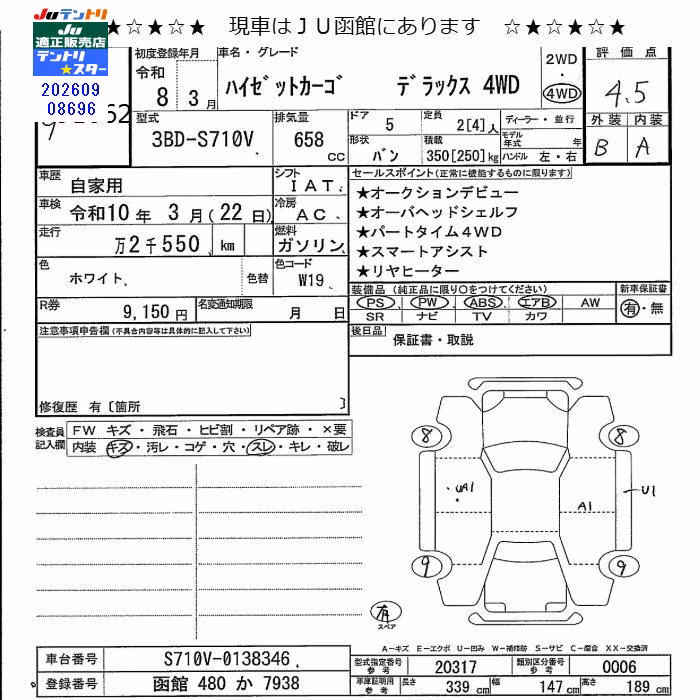 ☆★☆★☆ 現車はＪＵ函館にあります ☆★☆★☆
Juテントリ
JU
適正販売店
テントリ
★スター
202609
08696
初度登録年月
令和
8 年 3 月
車名・グレード
ハイゼットカーゴ デラックス 4WD
2WD
・
4WD
評価点
4.5
外装 内装
B A
型式
3BD-S710V
排気量
658
CC
ドア
5
定員
2[4]人
ディーラー・並行
形状
バン
積載
350[250]kg
モデル年式 年
ハンドル 左・右
車歴
自家用
シフト
IAT
車検
令和10年 3月(22日)
冷房
AC
走行
万2千550 km
燃料
ガソリン
色
ホワイト
色替
色コード
W19
R券
9,150円
名変通知期限
月 日
セールスポイント(正常に機能するものに限ります)
★オークションデビュー
★オーバヘッドシェルフ
★パートタイム4WD
★スマートアシスト
★リヤヒーター
装備品(純正品に限り○をつけてください)
新車保証書
PS PW ABS エアB AW
有・無
SR ナビ TV カワ
後日品
保証書・取説
注意事項申告欄(不具合内容等は具体的に記入して下さい)
修復歴 有〔箇所 〕
検査員
記入欄
FW キズ・飛石・ヒビ割・リペア跡・×要
内装 キズ・汚レ・コゲ・穴・スレ・キレ・破レ
8 8
UA1
A1
U1
9 9
有
スペア
A－キズ E－エクボ U－凹み W－補修跡 S－サビ C－腐食 XX－交換済
車台番号
S710V-0138346
登録番号
函館 480 か 7938
型式指定番号
参考
20317
類別区分番号
参考
0006
車庫証明用
参考
長さ
339 cm
幅
147 cm
高さ
189 cm